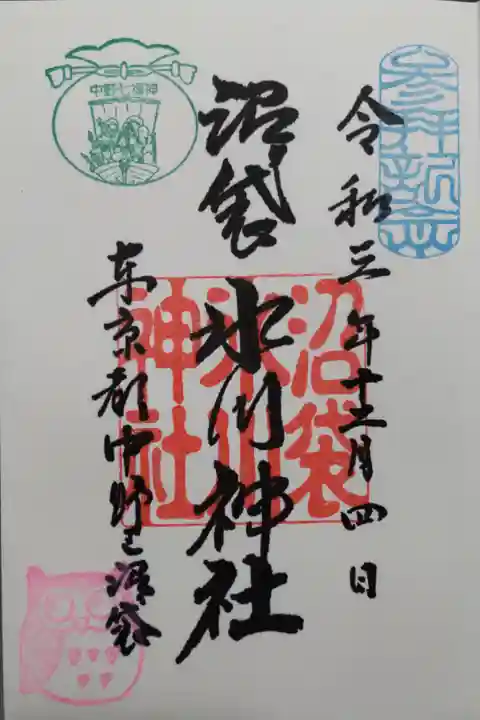 参拝記念
令和三年十二月四日
沼袋氷川神社
沼袋氷川神社
中野七福神
東京都中野区沼袋